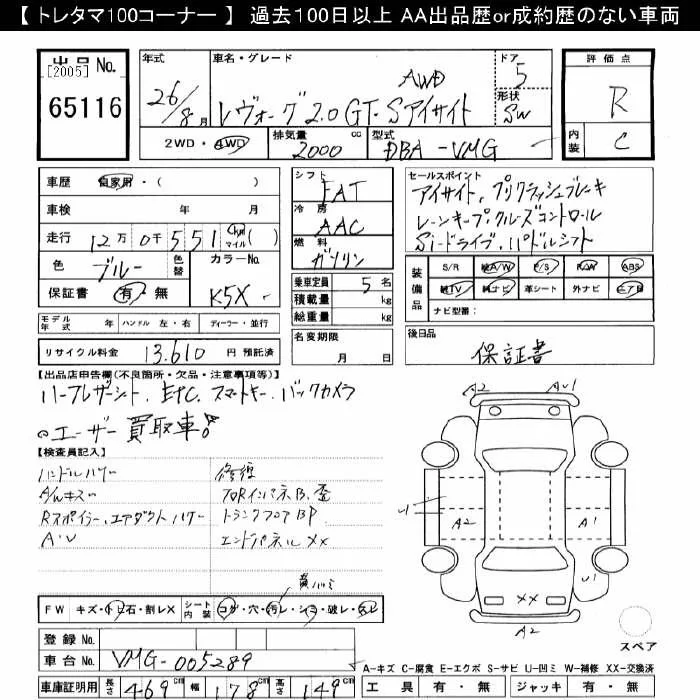 【 トレタマ100コーナー 】 過去100日以上 AA出品歴or成約歴のない車両
出品 No.
[2005]
65116
年式
26/8月
車名・グレード
AWD
レヴォーグ2.0GT-Sアイサイト
ドア
5
形状
SW
2WD・4WD
排気量
2000 cc
型式
DBA-VMG
評価点
R
内装
C
車歴 自家用・( )
車検 年 月
走行 12万0千551 km マイル( )
色 ブルー 色替
カラーNo.
K5X
保証書 有・無
シフト
FAT
冷房
AAC
燃料
ガソリン
乗車定員 5 名
積載量 kg
総重量 kg
セールスポイント
アイサイト、プリクラッシュブレーキ
レーンキープ、クルーズコントロール
Siドライブ、パドルシフト
装備品
S/R 純A/W P/S P/W ABS
純TV 純ナビ 革シート 外ナビ エアB
ナビ型番:
モデル年式 年 ハンドル 左・右 ディーラー・並行
リサイクル料金 13,610 円 預託済
名変期限
月 日
後日品
保証書
【出品店申告欄(不良箇所・欠品・注意事項等)】
ハーフレザーシート、ETC、スマートキー、バックカメラ
ユーザー買取車
【検査員記入】
ハンドルハゲ
A/Wキズ
Rスポイラー、エアダクトハゲ
A・U
修復
トランクフロアBP
エンドパネルXX
A2
AU1
U1
A2
A1
U1
XX
A2
スペア
FW キズ・トビ石・割レX
シート内装 コゲ・穴・汚レ・シミ・破レ・スレ
登録 No.
車台 No. VMG-005289
車庫証明用 長さ 469 cm 幅 178 cm 高さ 149 cm
A-キズ C-腐食 E-エクボ S-サビ U-凹ミ W-補修 XX-交換済
工具 有・無 ジャッキ 有・無